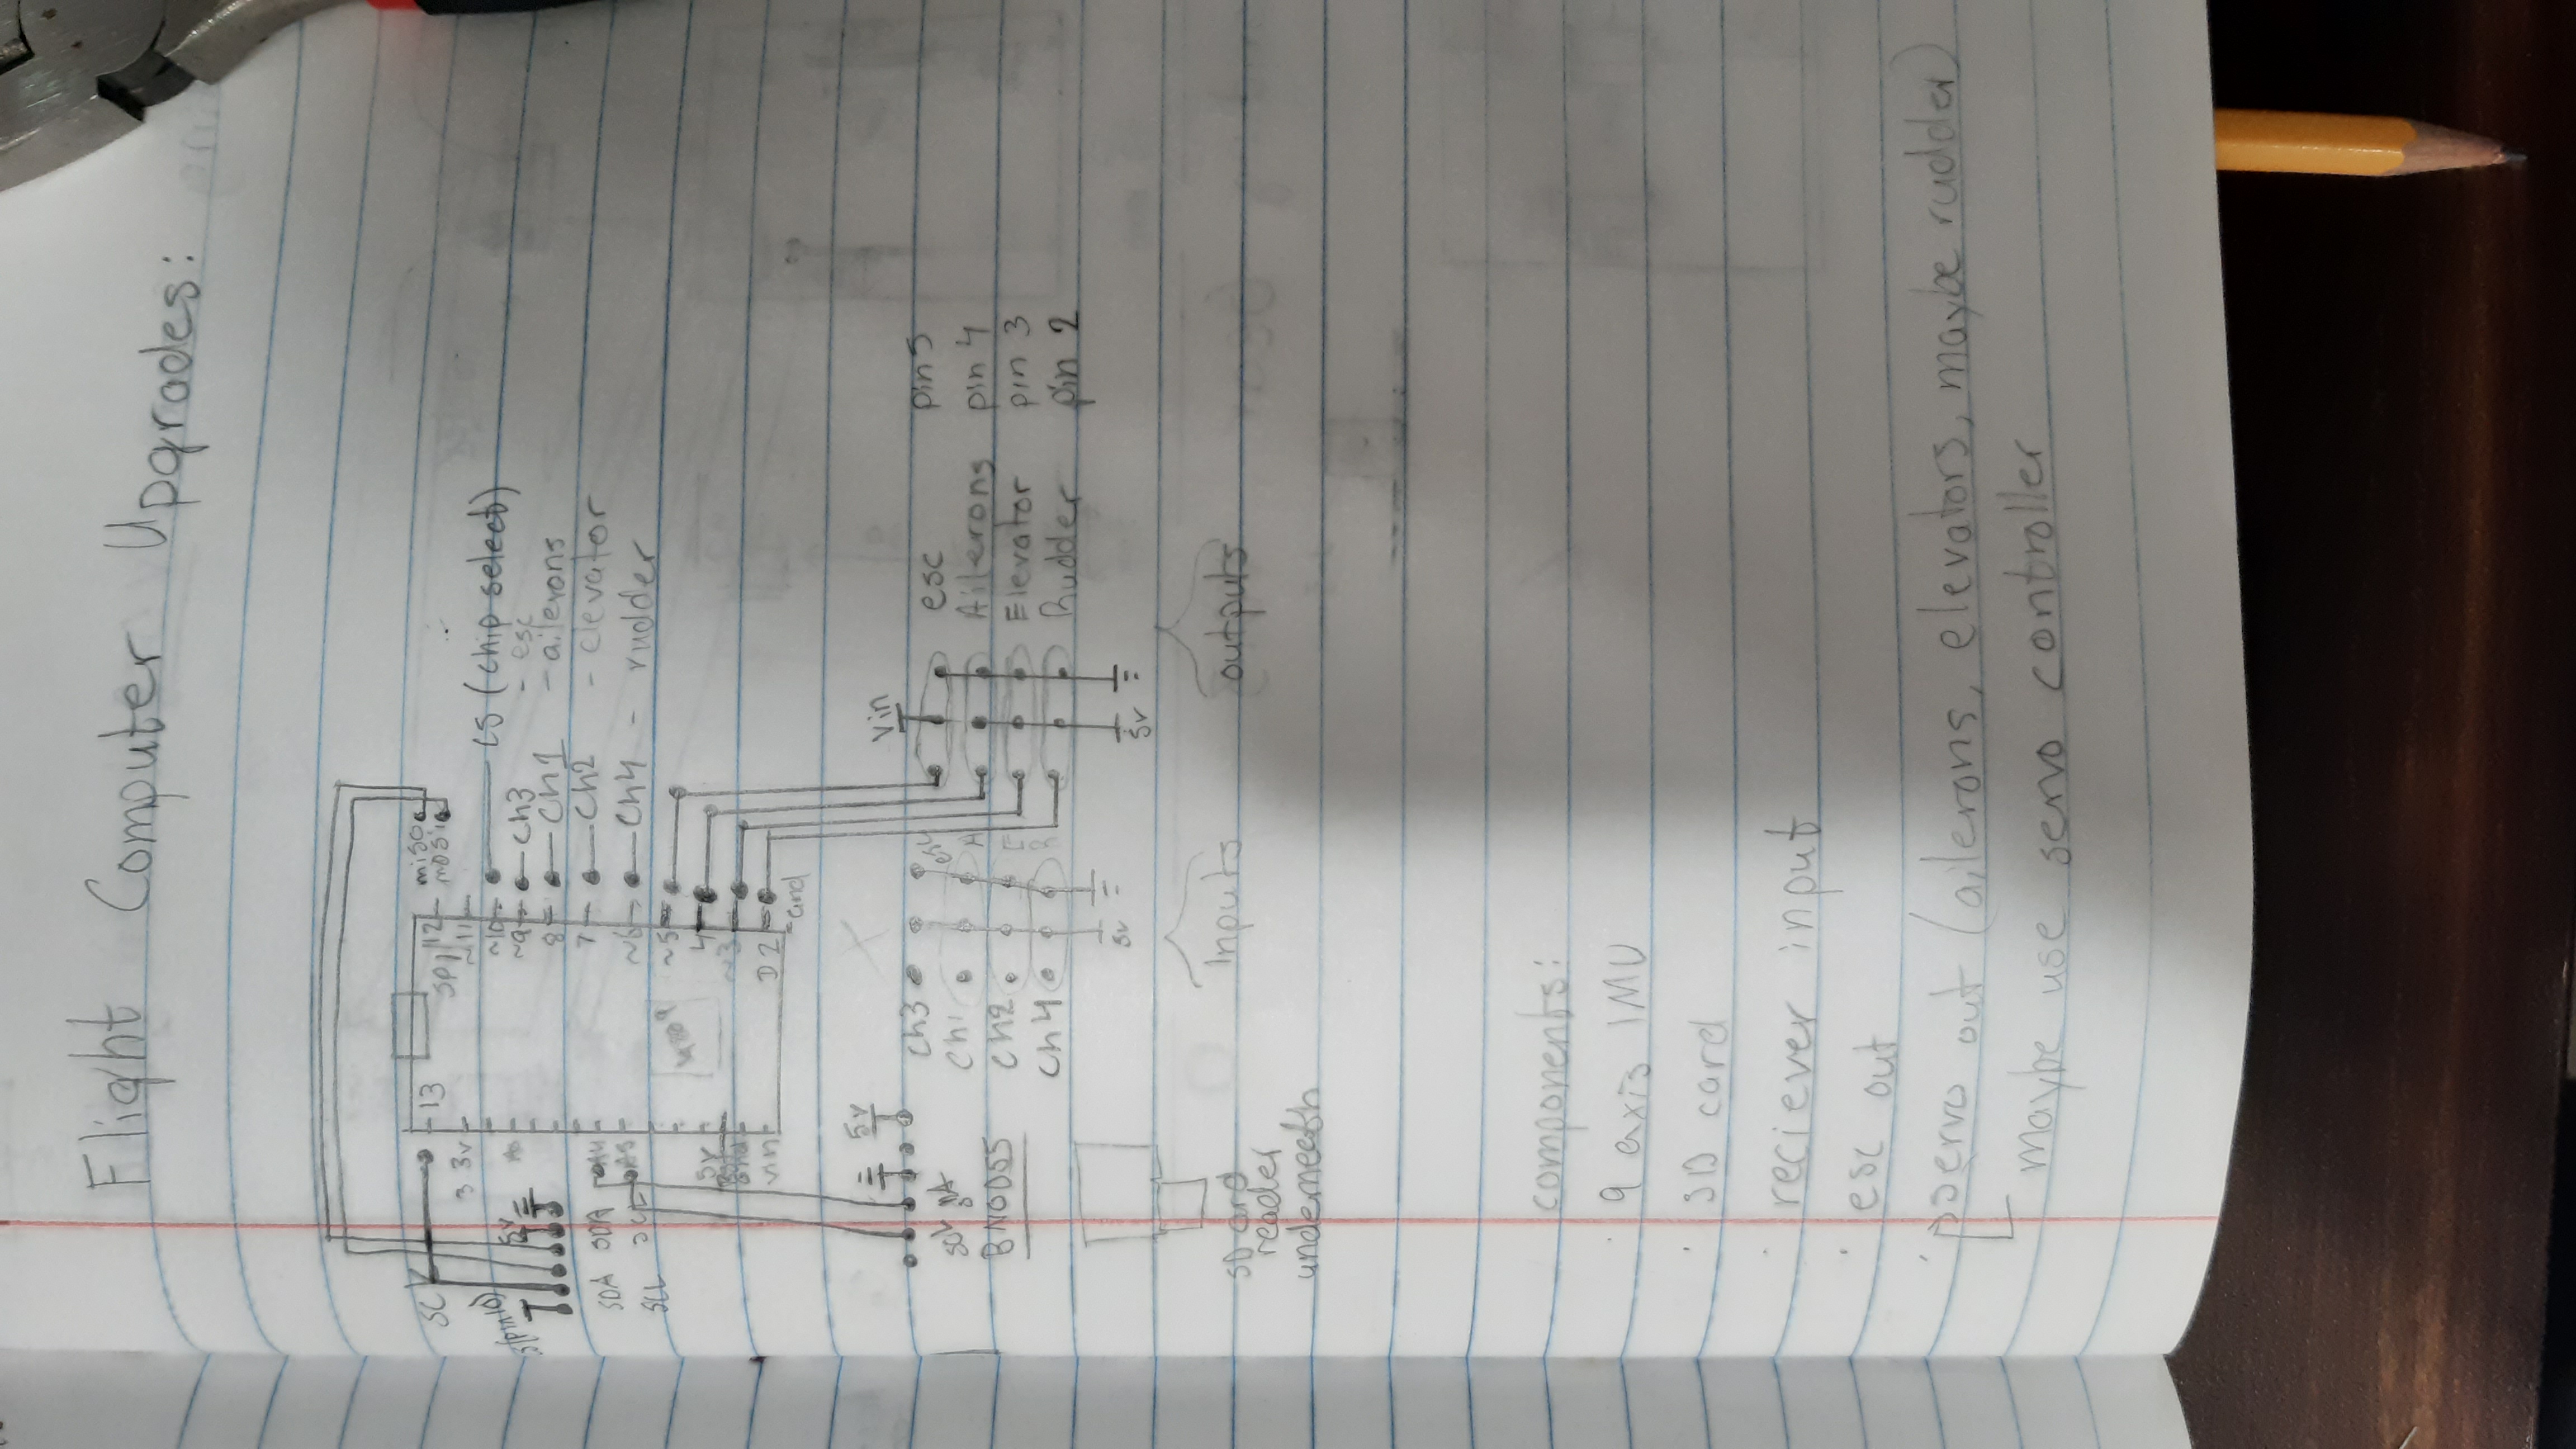 Flight Computer Upgrades:
13
SPI
12 miso
~11 mosi
~10 CS (chip select)
~9 Ch3 - esc
8 Ch1 - ailerons
7 Ch2 - elevator
~6 Ch4 - rudder
~5
4
~3
D2
Gnd
SCK
3 3v
A0
(pin10)
5v
SDA SDA A4
SCL A5
5v
Vin
5v
SDA
BNO055
Ch3
Ch1 A
Ch2 E
Ch4 R
5v
Inputs
Vin
esc pin5
Ailerons pin 4
Elevator pin 3
Rudder pin 2
5v
outputs
SD card
reader
underneath
components:
· 9 axis IMU
· SD card
· reciever input
· esc out
· servo out (ailerons, elevators, maybe rudder)
maybe use servo controller